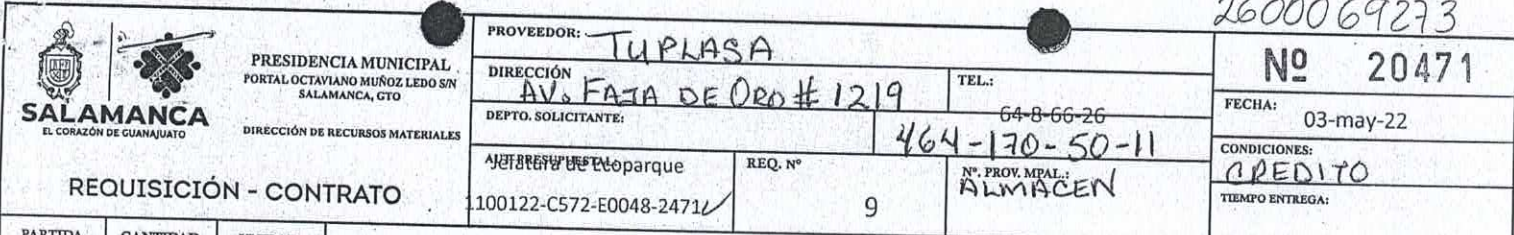 2600069273
SALAMANCA
EL CORAZÓN DE GUANAJUATO
PRESIDENCIA MUNICIPAL
PORTAL OCTAVIANO MUÑOZ LEDO S/N
SALAMANCA, GTO
DIRECCIÓN DE RECURSOS MATERIALES
REQUISICIÓN - CONTRATO
PROVEEDOR: TUPLASA
DIRECCIÓN AV. FAJA DE ORO # 1219
TEL.:
64-8-66-26
DEPTO. SOLICITANTE:
464-170-50-11
Jefatura de Ecoparque
1100122-C572-E0048-2471
REQ. Nº
9
Nº. PROV. MPAL.:
ALMACEN
Nº 20471
FECHA:
03-may-22
CONDICIONES:
CREDITO
TIEMPO ENTREGA:
PARTIDA CANTIDAD